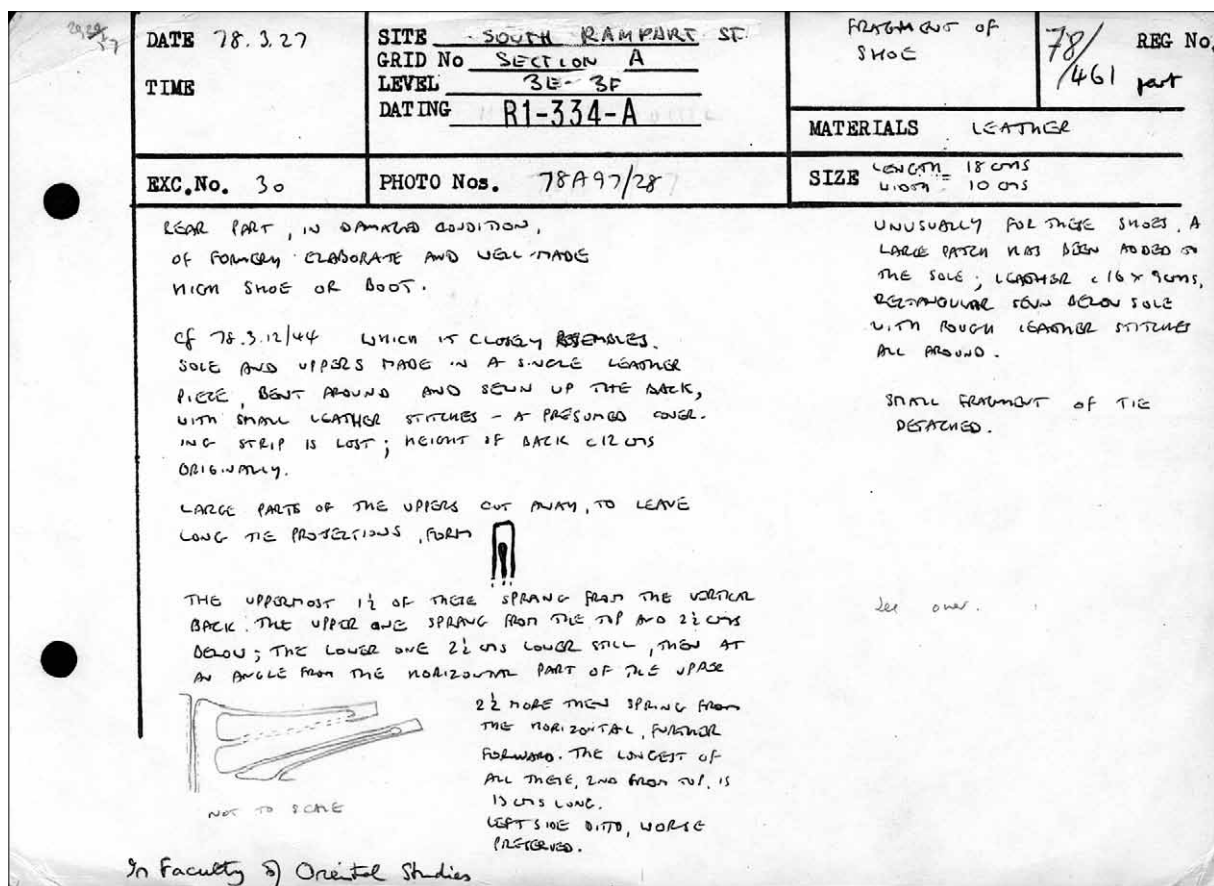 DATE 78.3.27
TIME
SITE SOUTH RAMPART ST.
GRID No SECTION A
LEVEL 3E-3F
DATING R1-334-A
FRAGMENT OF
SHOE
78/461 part
REG No.
MATERIALS LEATHER
EXC.No. 30
PHOTO Nos. 78A97/28
SIZE LENGTH = 18 cms
WIDTH = 10 cms
REAR PART, IN DAMAGED CONDITION,
OF FORMERLY ELABORATE AND WELL-MADE
HIGH SHOE OR BOOT.
cf 78.3.12/44 WHICH IT CLOSELY RESEMBLES.
SOLE AND UPPERS MADE IN A SINGLE LEATHER
PIECE, BENT AROUND AND SEWN UP THE BACK,
WITH SMALL LEATHER STITCHES - A PRESUMED COVER-
ING STRIP IS LOST; HEIGHT OF BACK c12 cms
ORIGINALLY.
LARGE PARTS OF THE UPPERS CUT AWAY, TO LEAVE
LONG TIE PROJECTIONS, FORM
THE UPPERMOST 1½ OF THESE SPRANG FROM THE VERTICAL
BACK. THE UPPER ONE SPRANG FROM THE TOP AND 2½ cms
BELOW; THE LOWER ONE 2½ cms LOWER STILL, THEN AT
AN ANGLE FROM THE HORIZONTAL PART OF THE UPPER
2½ MORE THEN SPRING FROM
THE HORIZONTAL, FURTHER
FORWARD. THE LONGEST OF
ALL THESE, 2ND FROM TOP, IS
13 cms LONG.
LEFT SIDE DITTO, WORSE
PRESERVED.
NOT TO SCALE
UNUSUALLY FOR THESE SHOES, A
LARGE PATCH HAS BEEN ADDED TO
THE SOLE; LEATHER c16 x 9cms,
RECTANGULAR SEWN BELOW SOLE
WITH ROUGH LEATHER STITCHES
ALL AROUND.
SMALL FRAGMENT OF TIE
DETACHED.
See over.
In Faculty of Oriental Studies